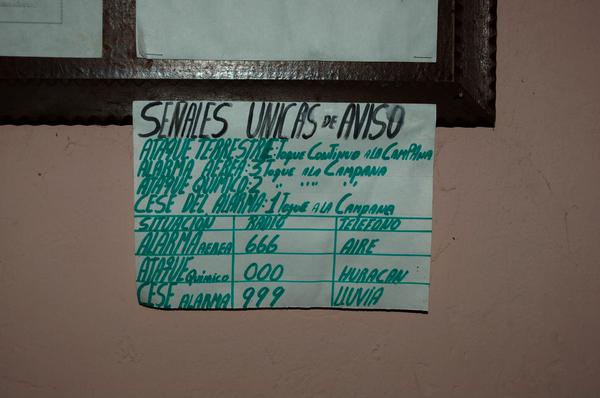 SEÑALES UNICAS DE AVISO
ATAQUE TERRESTRE: TOQUE CONTINUO A LA CAMPANA
ALARMA AEREA: 3 TOQUE A LA CAMPANA
ATAQUE QUIMICO: 2 " "" "
CESE DEL ALARMA: 1 TOQUE A LA CAMPANA
SITUACION RADIO TELEFONO
ALARMA AEREA 666 AIRE
ATAQUE QUIMICO 000 HURACAN
CESE ALARMA 999 LLUVIA